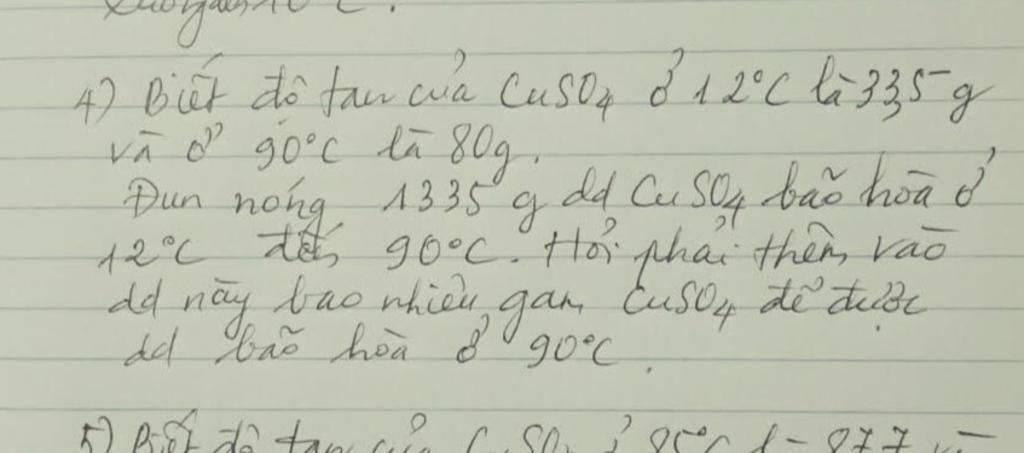 4) Biết độ tan của CuSO4 ở 12°C là 33,5 g
và ở 90°C là 80g.
Đun nóng 1335 g dd CuSO4 bão hòa ở
12°C đến 90°C. Hỏi phải thêm vào
dd này bao nhiêu gam CuSO4 để được
dd bão hòa ở 90°C.
5) Biết độ tan của